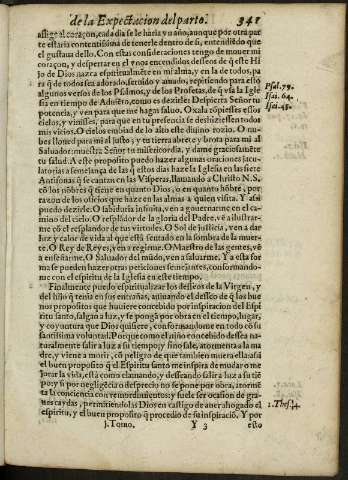 de la Expectacion del parto. 341
aflige al coraçon, cada dia se le haria vn año, aunque por otra par
te estaria contentissima de tenerle dentro de si, entendiẽdo que
el gustaua dello. Con estas consideraciones tengo de mouer mi
coraçon, y despertar en el vnos encendidos desseos de q̃ este Hi
jo de Dios nazca espiritualmẽte en mi alma, y en la de todos, pa
ra q̃ de todos sea adorado, seruido y amado, repitiendo para esto
algunos versos de los Psalmos, y de los Profetas, de q̃ vsa la Igle
sia en tiempo de Aduiẽto, como es dezirle: Despierta Señor tu
potencia, y ven para que me hagas saluo. O xala rōpiesses essos
cielos, y viniesses, para que en tu presencia se deshiziessen todos
mis vicios. O cielos embiad de lo alto este diuino rozio. O nu-
bes lloued para mi al justo, y tu tierra abrete, y brota para mi al
Saluador: muestra Señor tu misericordia, y dame graciosamẽte
tu salud. A este proposito puedo hazer algunas oraciones jacu-
latorias a semelança de las q̃ estos dias haze la Iglesia en las siete
Antifonas q̃ se cantan en las Visperas, llamando a Christo N. S.
cō los nōbres q̃ tiene en quanto Dios, o en quanto hōbre, por
razon de los oficios que haze en las almas a quien visita. Y assi
puedo dezirle. O sabiduria infinita, ven a gouernarme en el ca-
mino del cielo. O resplādor de la gloria del Padre, vẽ a ilustrar-
me cō el resplandor de tus virtudes. O Sol de justicia, ven a dar
luz y calor de vida al que està sentado en la sombra de la muer-
te. O Rey de Reyes, ven a regirme. O Maestro de las gentes, vẽ
a enseñarme. O Saluador del mũdo, ven a saluarme. Y a esta for
ma se pueden hazer otras peticiones semejantes, conformando-
me con el espiritu de la Iglesia en este tiempo.
Finalmente puedo espiritualizar los desseos de la Virgen, y
del hijo q̃ tenia en sus entrañas, afinando el desseo de q̃ los bue
nos propositos que huuiere concebido por inspiracion del Espi
ritu santo, salgan a luz, y se pongā por obra en el tiempo, lugar,
y coyuntura que Dios quisiere, conformandome en todo cō su
santissima voluntad. Porque como el niño concebido dessea na-
turalmente salir a luz a su tiempo; y sino sale, atormenta a la ma
dre, y viene a morir, cō peligro de que tambien muera ella: assi
el buen proposito q̃ el Espiritu santo me inspira de mudar o me
jorar la vida, està como clamando, y desseando salir a luz a su tiẽ
po; y si por negligẽcia o desprecio no se pone por obra, atormẽ
ta la conciencia con remordimientos: y suele ser ocasion de gran-
nes caydas, permitiendolas Dios en castigo de auer ahogado el
espiritu, y el buen proposito q̃ procedio de su inspiraciō. Y por
j. Tomo. Y 3 esto
Psal. 79.
Isai. 64.
Isai. 45.
1. Thes.